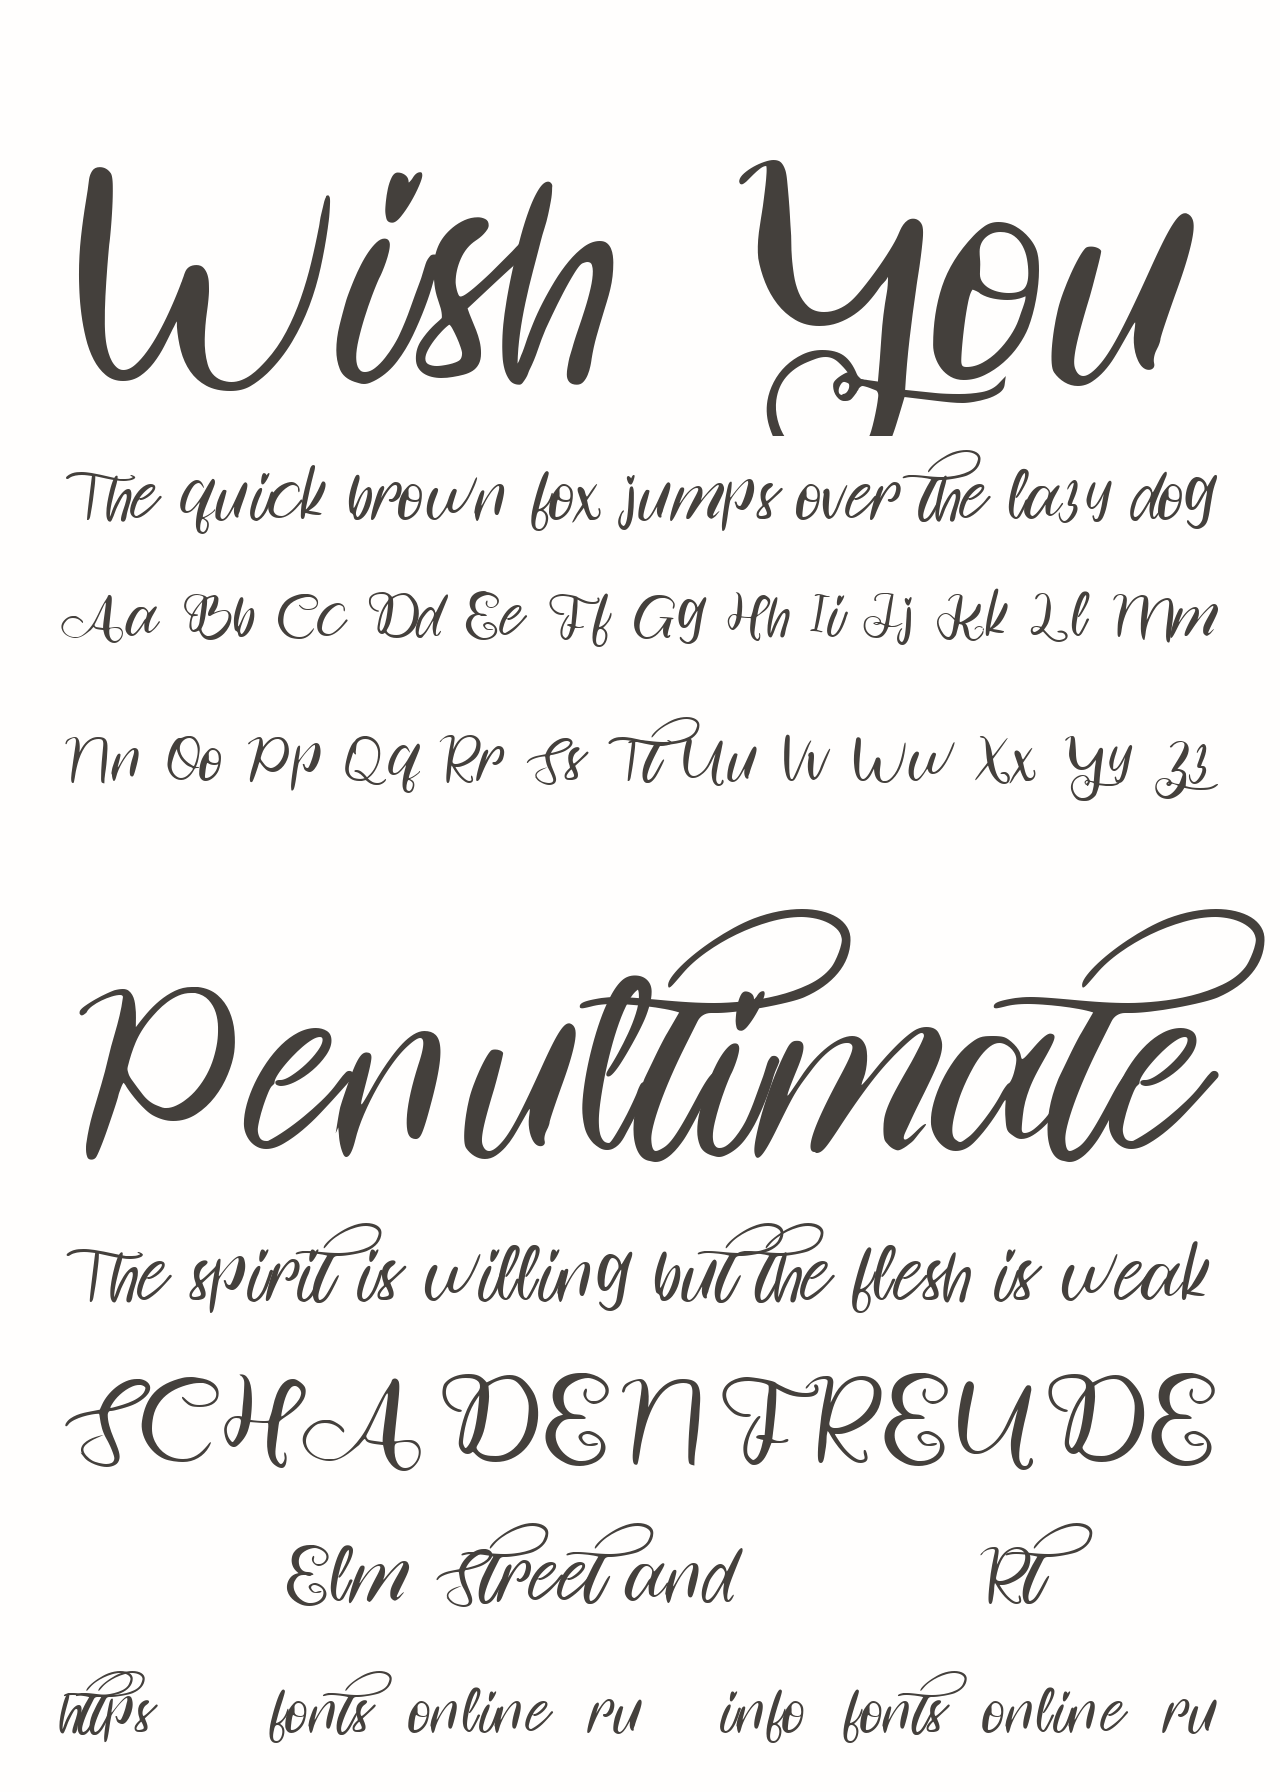 Wish You
The quick brown fox jumps over the lazy dog
Aa Bb Cc Dd Ee Ff Gg Hh Ii Jj Kk Ll Mm
Nn Oo Pp Qq Rr Ss Tt Uu Vv Ww Xx Yy Zz
Penultimate
The spirit is willing but the flesh is weak
SCHADENFREUDE
Elm Street and Rt
https fonts online ru info fonts online ru